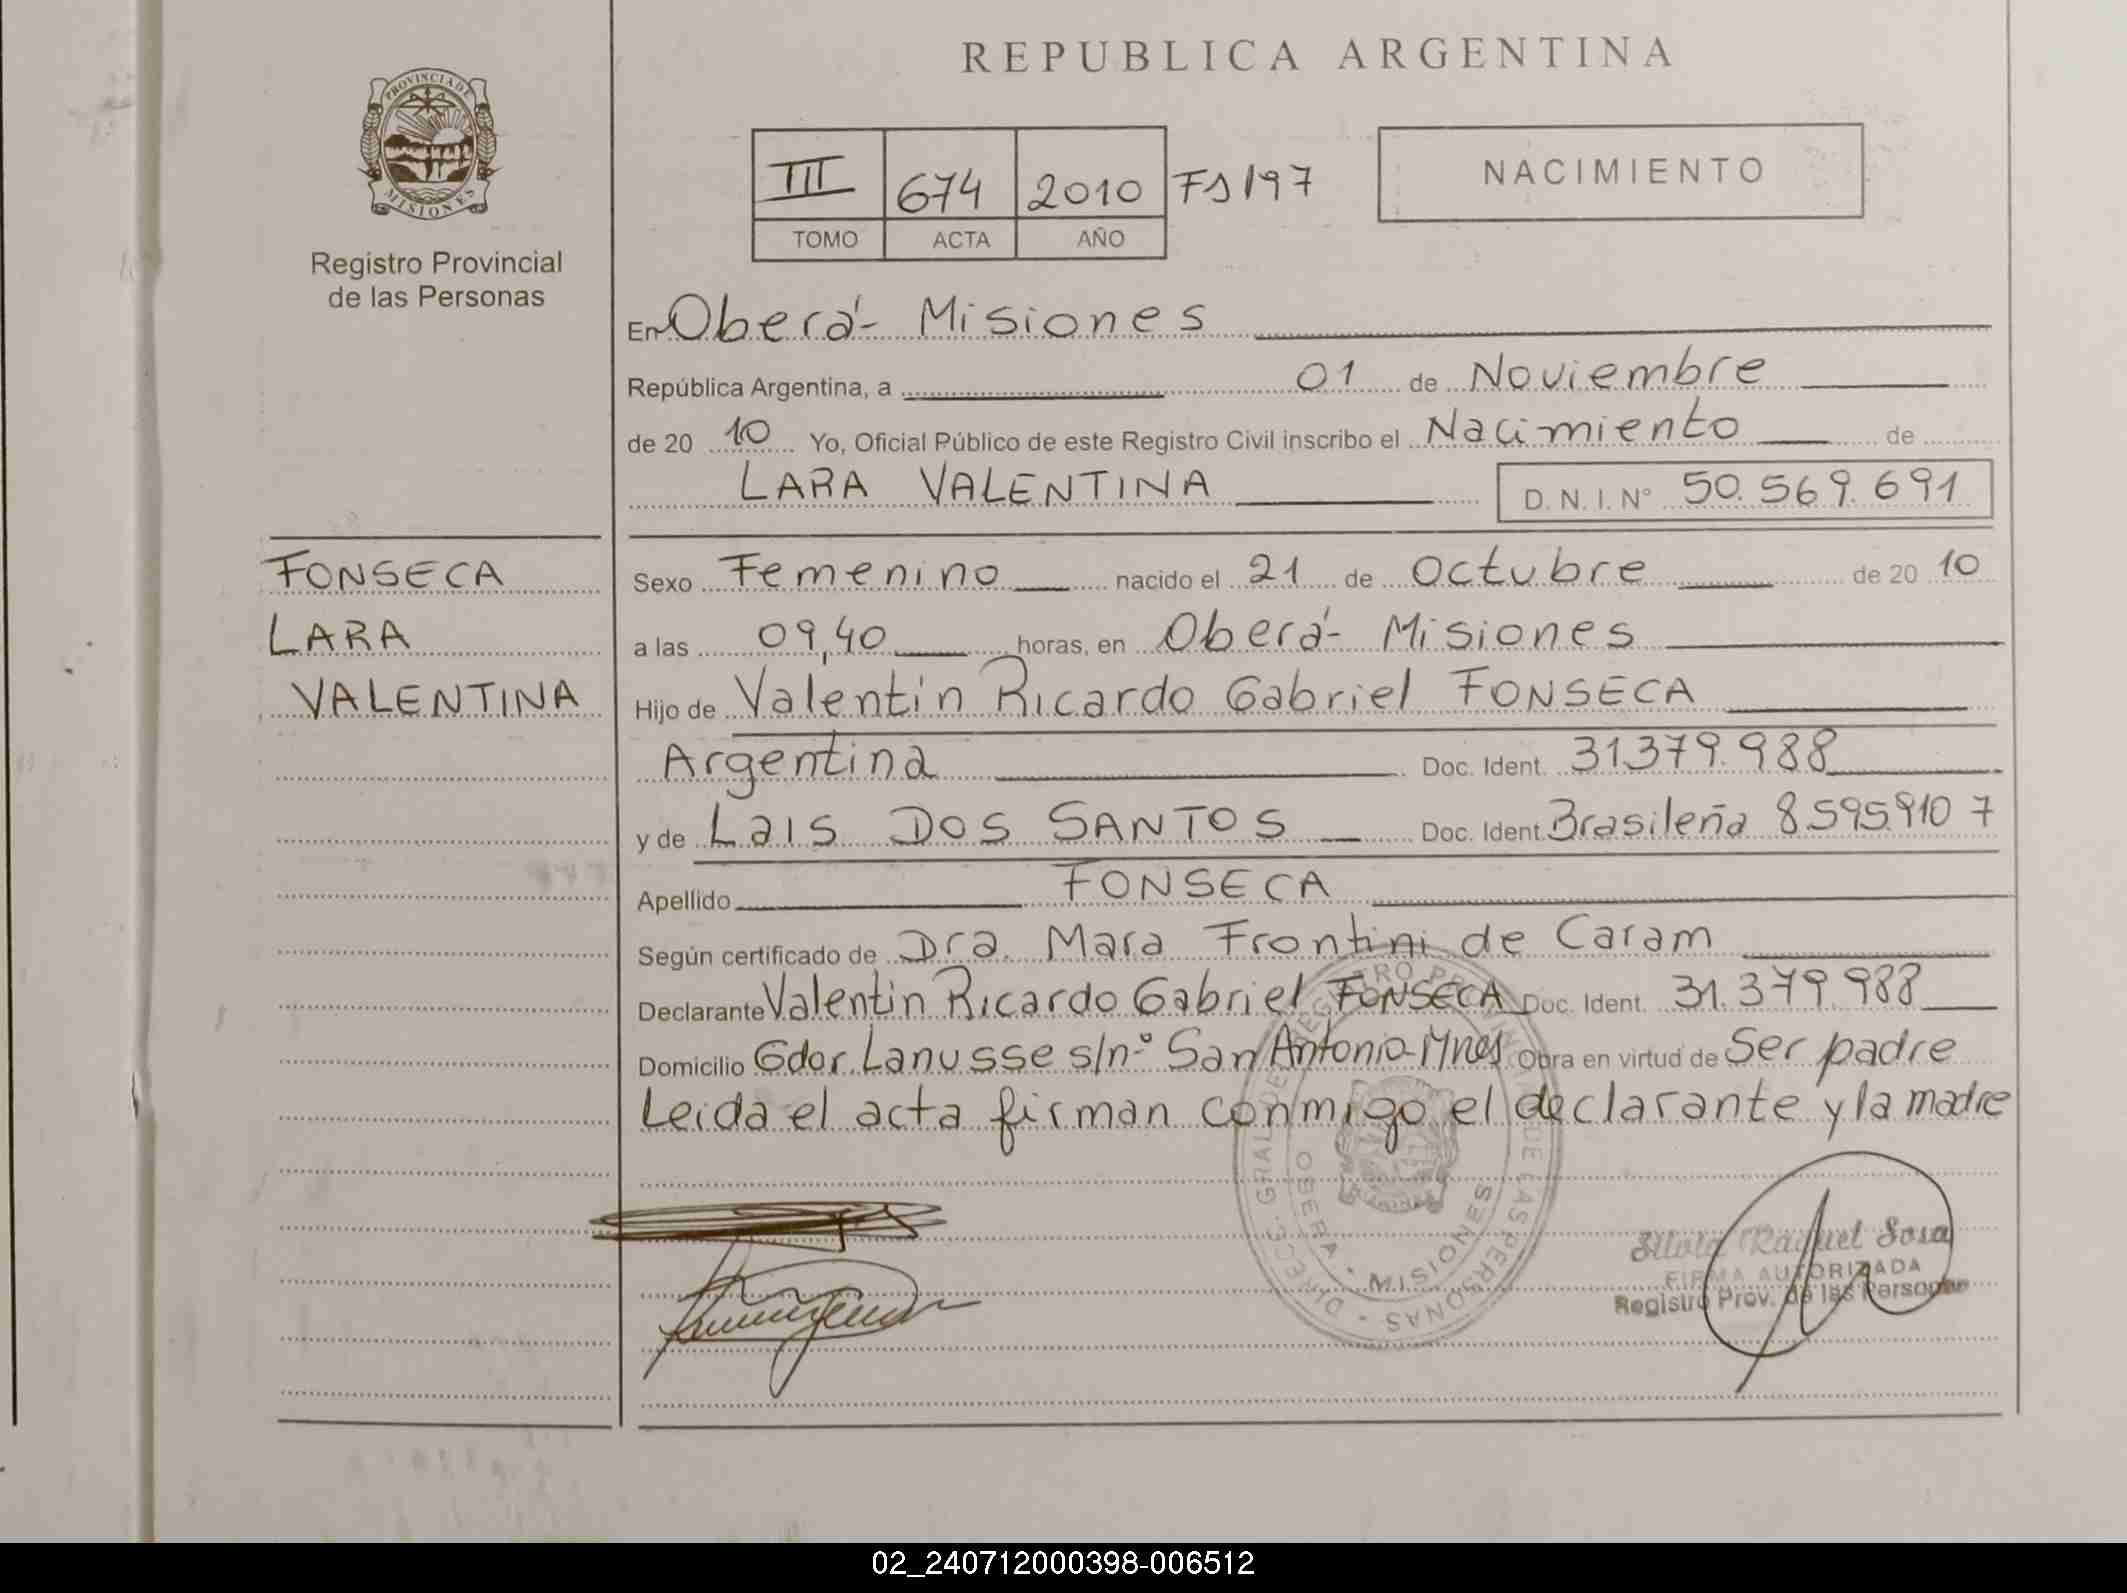 REPUBLICA ARGENTINA
PROVINCIA DE
MISIONES
Registro Provincial
de las Personas
III 674 2010 Fs 197
TOMO ACTA AÑO
NACIMIENTO
En Oberá - Misiones
República Argentina, a 01 de Noviembre
de 20 10 Yo, Oficial Público de este Registro Civil inscribo el Nacimiento de
LARA VALENTINA D. N. I. N° 50.569.691
FONSECA
LARA
VALENTINA
Sexo Femenino nacido el 21 de Octubre de 20 10
a las 09,40 horas, en Oberá - Misiones
Hijo de Valentín Ricardo Gabriel FONSECA
Argentina Doc. Ident. 31.379.988
y de Lais DOS SANTOS Doc. Ident. Brasileña 8.595.910 7
Apellido FONSECA
Según certificado de Dra. Mara Frontini de Caram
Declarante Valentín Ricardo Gabriel FONSECA Doc. Ident. 31.379.988
Domicilio Gdor. Lanusse s/n° San Antonio - Mnes Obra en virtud de Ser padre
Leída el acta firman conmigo el declarante y la madre
DIRECC. GRAL. DE REGISTRO PROVINCIAL DE LAS PERSONAS
OBERA - MISIONES
Silvia Raquel Sosa
FIRMA AUTORIZADA
Registro Prov. de las Personas
02_240712000398-006512